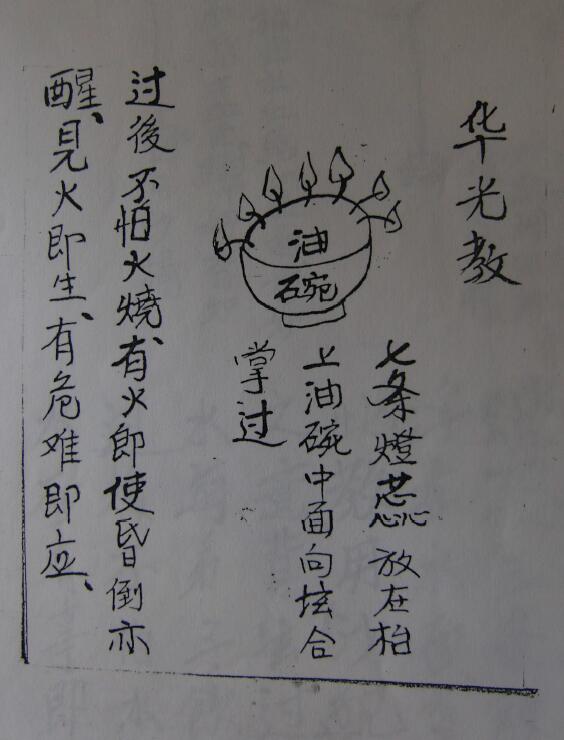 华光教
七条燈蕊放在枱
上油碗中面向坛合
掌过
油
碗
过後不怕火燒、有火即使昏倒亦
醒、見火即生、有危难即应、